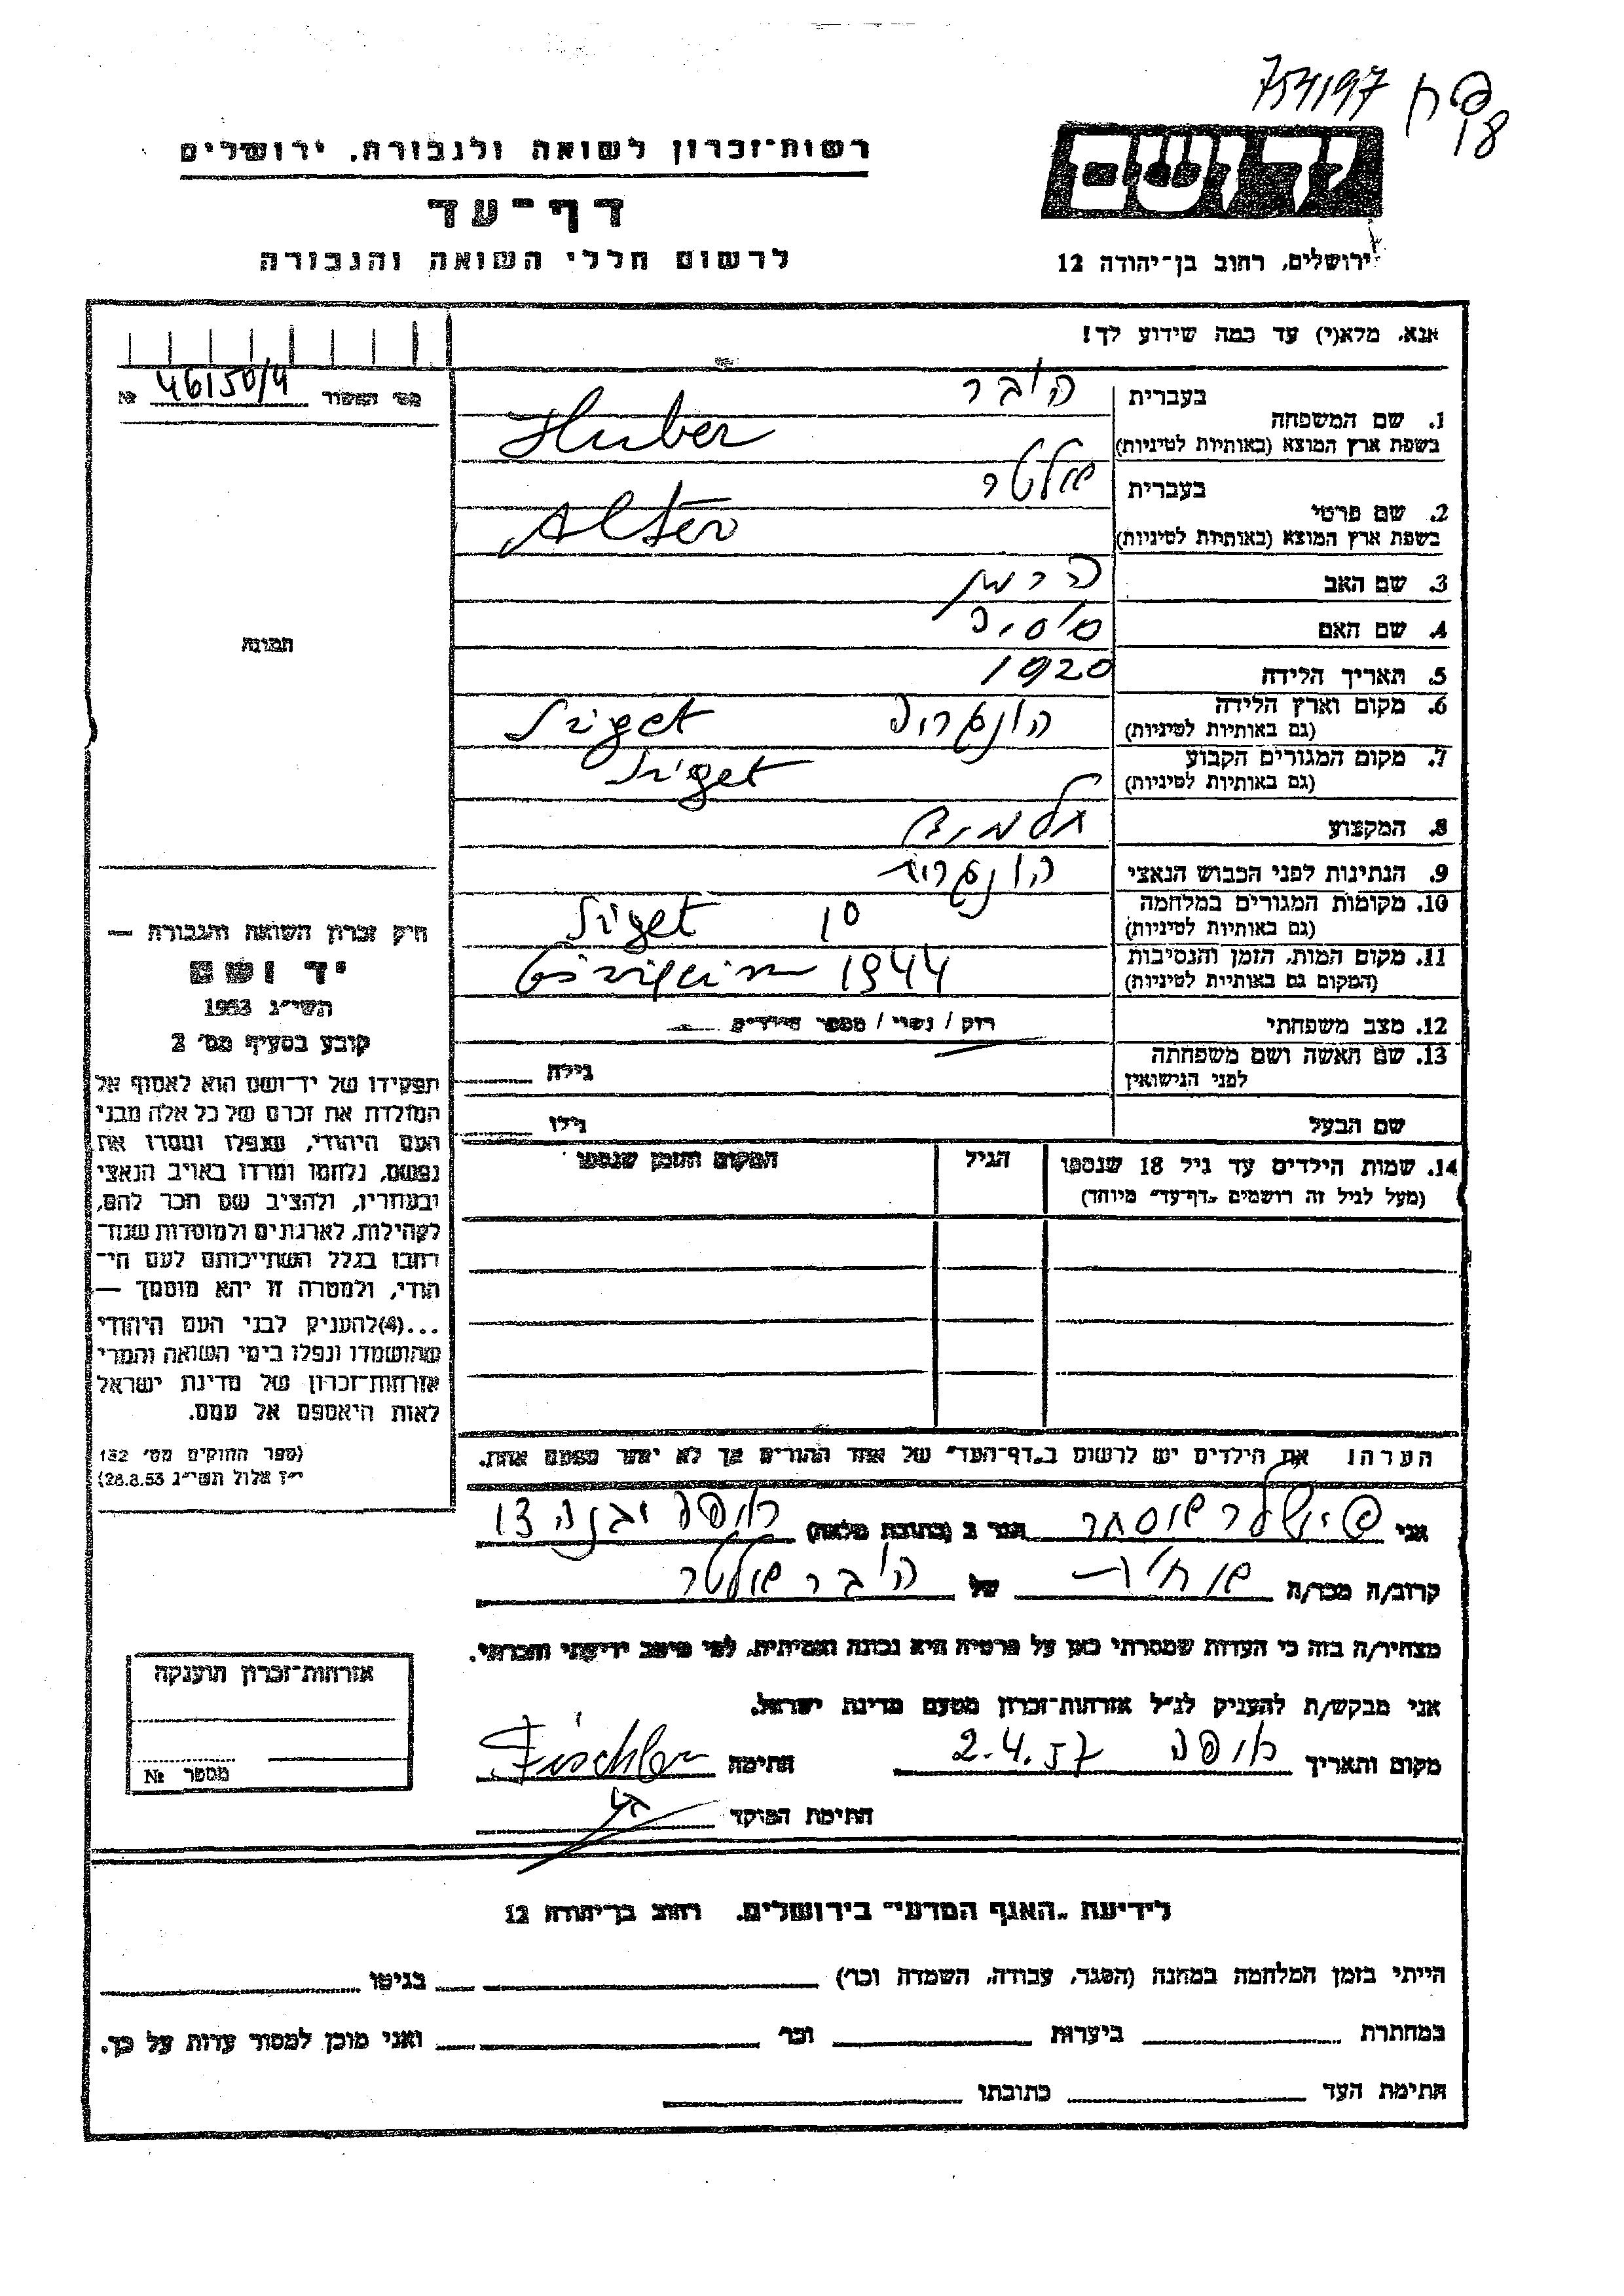 754197 פח
18
יד ושם
רשות־זכרון לשואה ולגבורה, ירושלים
דף־עד
לרשום חללי השואה והגבורה
ירושלים, רחוב בן־יהודה 12
אנא, מלא(י) עד כמה שידוע לך!
46150/4 №
1. שם המשפחה
בעברית הובר
בשפת ארץ המוצא (באותיות לטיניות) Huber
2. שם פרטי
בעברית אלטר
בשפת ארץ המוצא (באותיות לטיניות) Alter
3. שם האב הרמן
4. שם האם
5. תאריך הלידה 1920
6. מקום וארץ הלידה הונגריה Sziget
(גם באותיות לטיניות)
7. מקום המגורים הקבוע Sziget
(גם באותיות לטיניות)
8. המקצוע תלמיד
9. הנתינות לפני הכבוש הנאצי הונגרית
10. מקומות המגורים במלחמה Sziget
(גם באותיות לטיניות)
11. מקום המות, הזמן והנסיבות 1944
(המקום גם באותיות לטיניות)
12. מצב משפחתי רוק / נשוי / מספר הילדים
13. שם האשה ושם משפחתה גילה
לפני הנישואין
שם הבעל גילו
14. שמות הילדים עד גיל 18 שנספו הגיל המקום והזמן שנספו
(מעל לגיל זה רושמים „דף־עד” מיוחד)
הערה: את הילדים יש לרשום ב„דף־העד” של אחד ההורים אך לא יותר מפעם אחת.
תמונה
חיק זכרון השואה והגבורה —
יד ושם
תשי״ג 1953
קובע בסעיף מס׳ 2
תפקידו של יד־ושם הוא לאסוף אל
המולדת את זכרם של כל אלה מבני
העם היהודי, שנפלו ומסרו את
נפשם, נלחמו ומרדו באויב הנאצי
ובעוזריו, ולהציב שם וזכר להם,
לקהילות, לארגונים ולמוסדות שנח־
רבו בגלל השתייכותם לעם הי־
הודי, ולמטרה זו יהא מוסמך —
...(4)להעניק לבני העם היהודי
שהושמדו ונפלו בימי השואה והמרי
אזרחות־זכרון של מדינת ישראל
לאות היאספם אל עמם.
(ספר החוקים מס׳ 132
י״ז אלול תשי״ג 28.8.53)
אני פישלר אסתר הגר ב (כתובת מלאה) חיפה יבנה 13
קרוב/ה מכר/ה אחות של הובר אלטר
מצהיר/ה בזה כי העדות שמסרתי כאן על פרטיה היא נכונה ואמיתית, לפי מיטב ידיעתי והכרתי.
אני מבקש/ת להעניק לנ״ל אזרחות־זכרון מטעם מדינת ישראל.
מקום ותאריך חיפה 2.4.57 חתימה Fischler
חתימת הפוקד
אזרחות־זכרון הוענקה
מספר №
לידיעת „האגף המדעי” בירושלים, רחוב בן־יהודה 12
הייתי בזמן המלחמה במחנה (הסגר, עבודה, השמדה וכר׳) בגיטו
במחתרת ביערות וכר׳ ואני מוכן למסור עדות על כך.
חתימת העד כתובתו